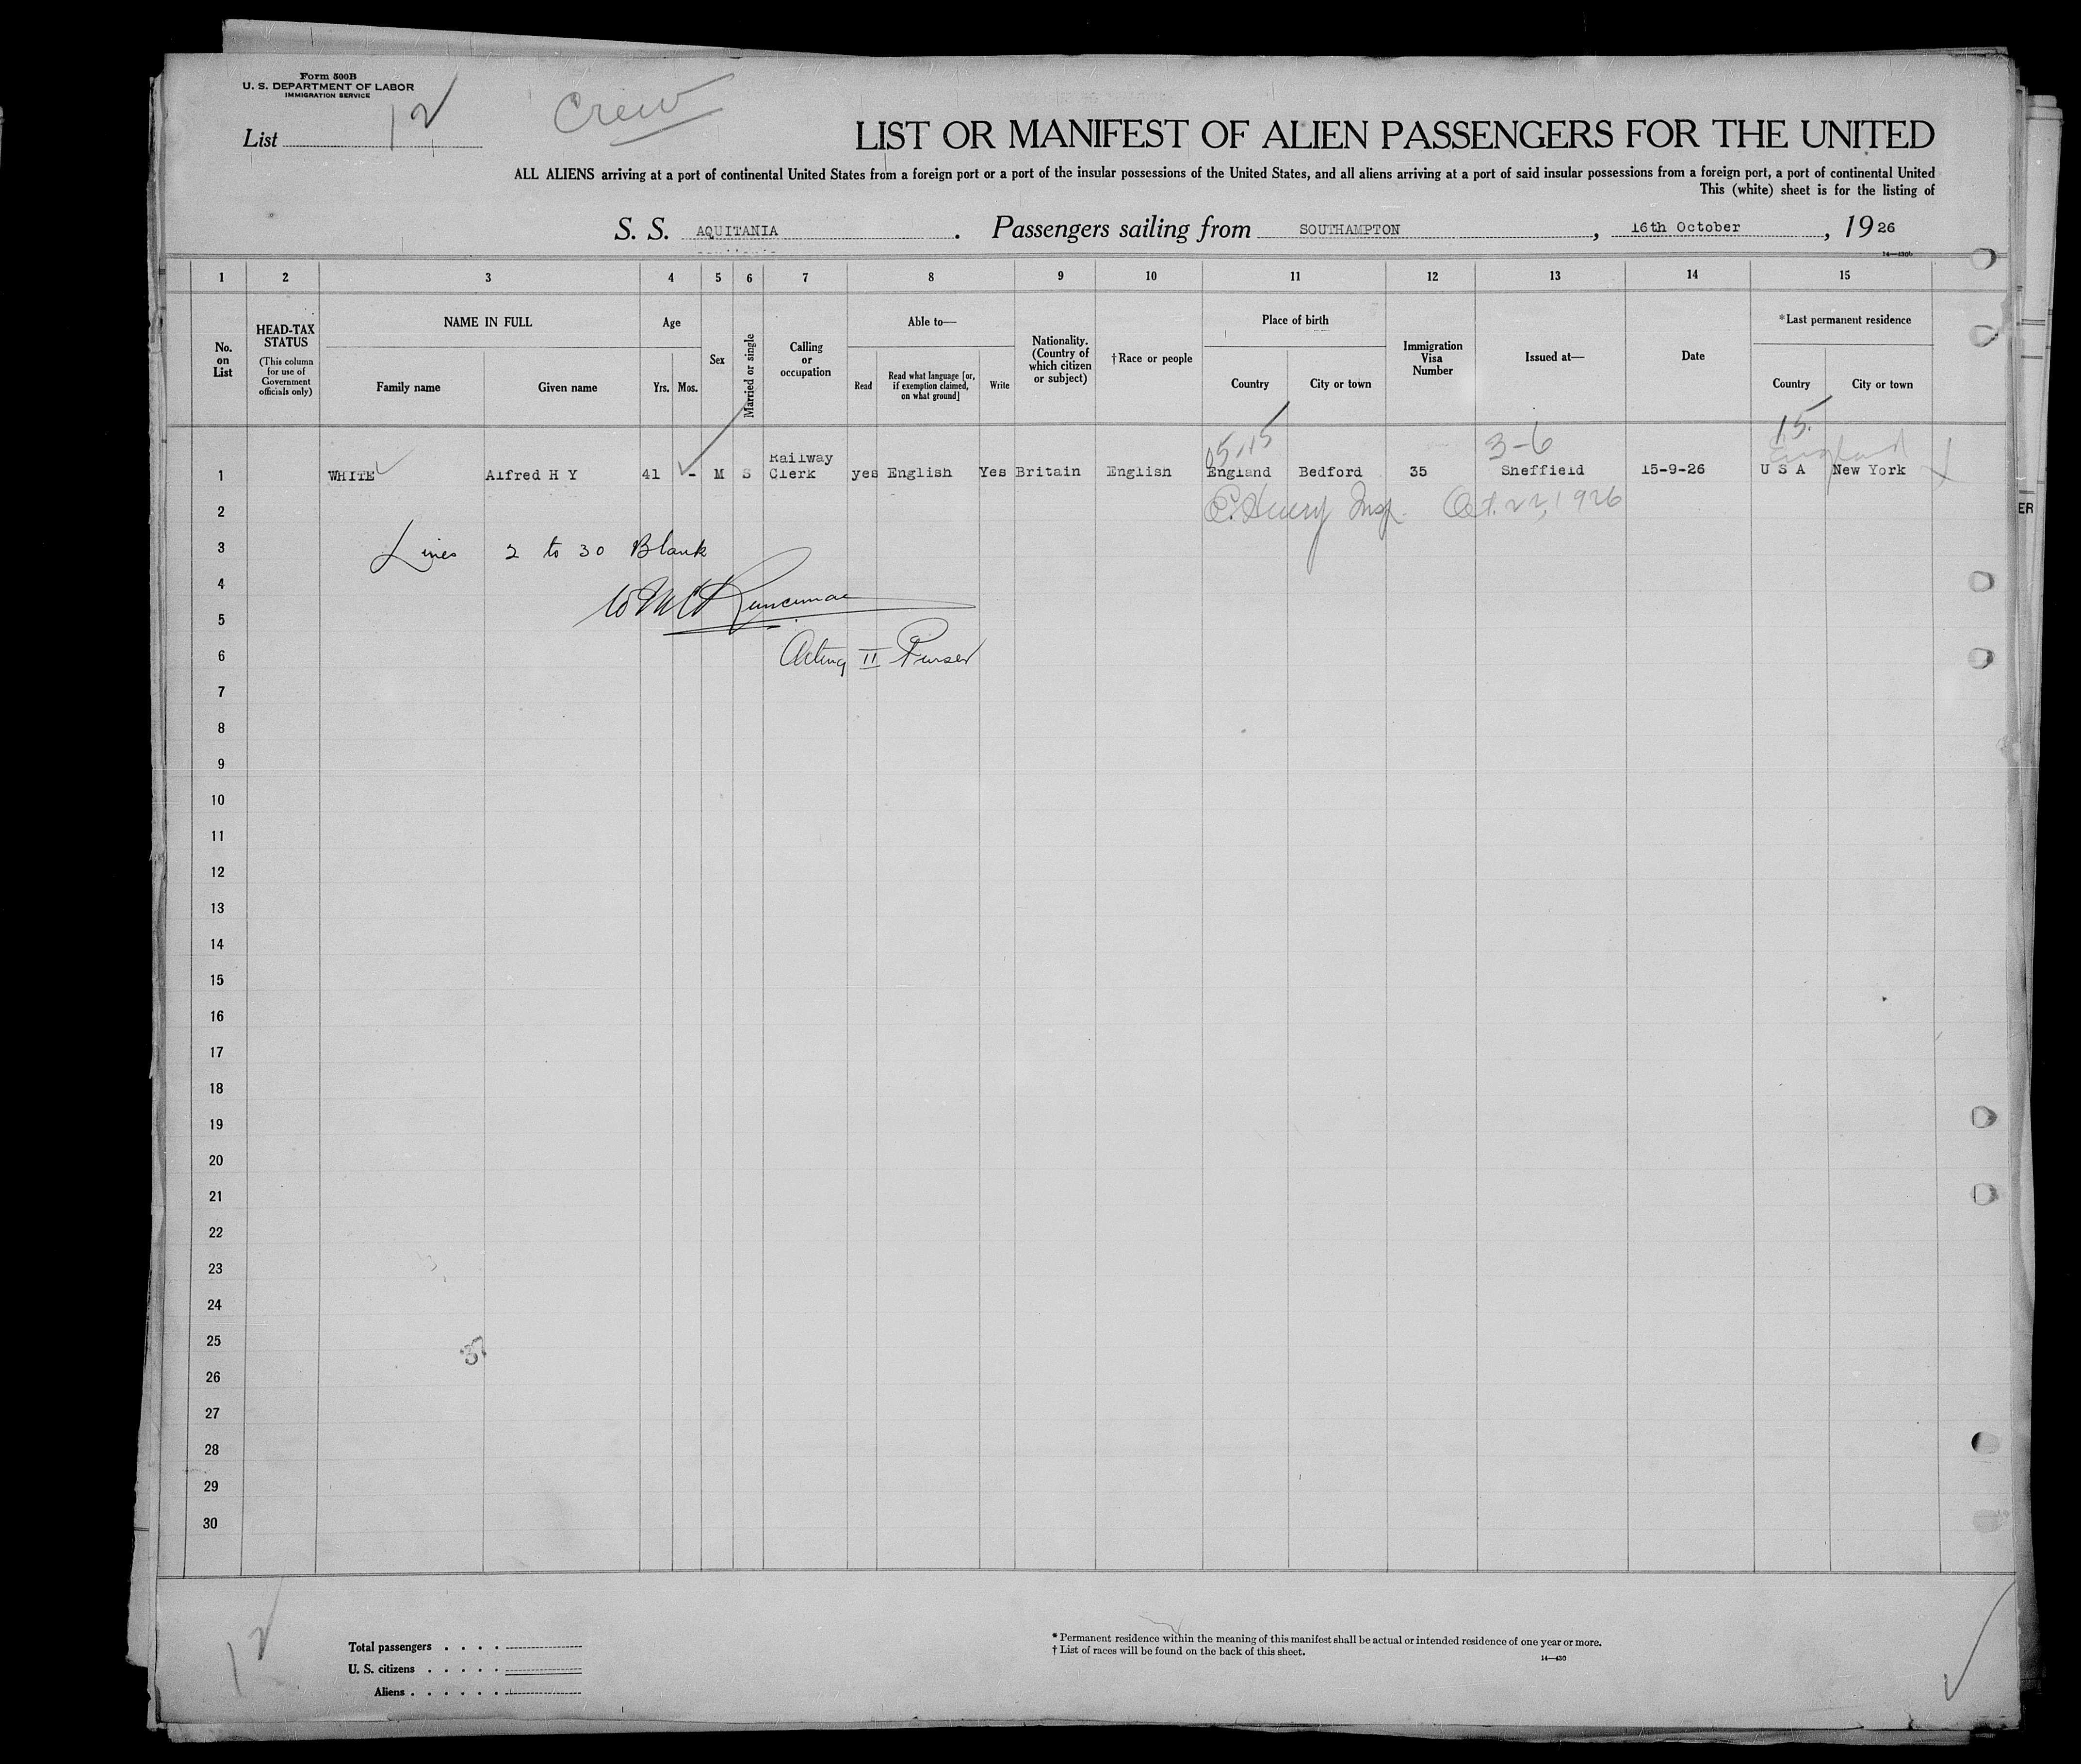 Form 500B
U. S. DEPARTMENT OF LABOR
IMMIGRATION SERVICE
List 12
Crew
LIST OR MANIFEST OF ALIEN PASSENGERS FOR THE UNITED
ALL ALIENS arriving at a port of continental United States from a foreign port or a port of the insular possessions of the United States, and all aliens arriving at a port of said insular possessions from a foreign port, a port of continental United
This (white) sheet is for the listing of
S. S. AQUITANIA. Passengers sailing from SOUTHAMPTON, 16th October, 1926
14—430b
1 2 3 4 5 6 7 8 9 10 11 12 13 14 15
No. on List
HEAD-TAX STATUS
(This column for use of Government officials only)
NAME IN FULL
Family name Given name
Age
Yrs. Mos.
Sex
Married or single
Calling or occupation
Able to—
Read
Read what language [or, if exemption claimed, on what ground]
Write
Nationality. (Country of which citizen or subject)
†Race or people
Place of birth
Country City or town
Immigration Visa Number
Issued at—
Date
*Last permanent residence
Country City or town
3-6 15.
England
1 WHITE Alfred H Y 41 - M S Railway Clerk yes English Yes Britain English England Bedford 35 Sheffield 15-9-26 U S A New York
2 Henry Insp. Oct. 22, 1926
ER
3 Lines 2 to 30 Blank
4
5
6 Acting II Purser
7
8
9
10
11
12
13
14
15
16
17
18
19
20
21
22
23
24
25
37
26
27
28
29
30
12
Total passengers . . . .
U. S. citizens . . . . .
Aliens . . . . . .
* Permanent residence within the meaning of this manifest shall be actual or intended residence of one year or more.
† List of races will be found on the back of this sheet.
14—430